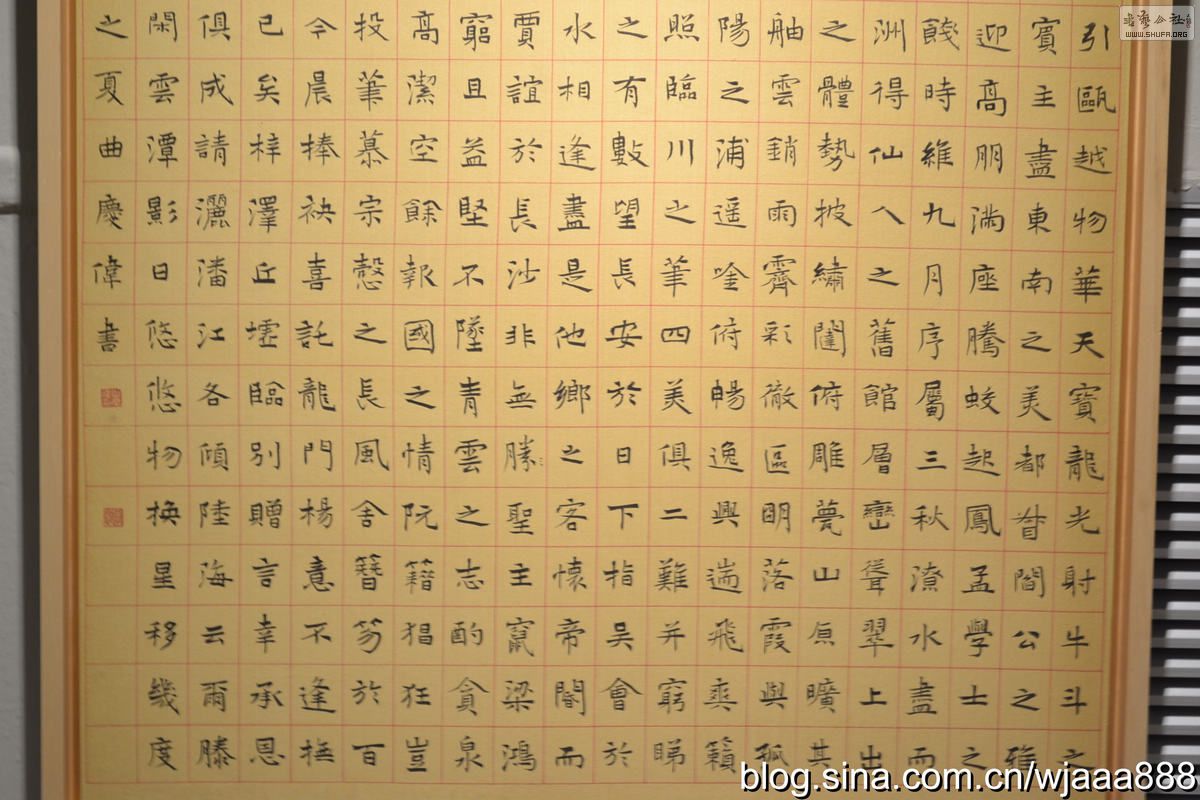 引甌越物華天寶龍光射牛斗之
賓主盡東南之美都督閻公之雅
迎高朋滿座騰蛟起鳳孟學士之
餞時維九月序屬三秋潦水盡而
洲得仙人之舊館層巒聳翠上出
之體勢披繡闥俯雕甍山原曠其
舳雲銷雨霽彩徹區明落霞與孤
陽之浦遥唫俯暢逸興遄飛爽籟
照臨川之筆四美俱二難并窮睇
之有數望長安於日下指吳會於
水相逢盡是他鄉之客懷帝閽而
賈誼於長沙非無勝聖主竄梁鴻
窮且益堅不墜青雲之志酌貪泉
高潔空餘報國之情阮籍猖狂豈
投筆慕宗愨之長風舍簪笏於百
今晨捧袂喜託龍門楊意不逢撫
已矣梓澤丘墟臨別贈言幸承恩
俱成請灑潘江各傾陸海云爾滕
閑雲潭影日悠悠物換星移幾度
之夏曲慶偉書
WWW.SHUFA.ORG
blog.sina.com.cn/wjaaa888